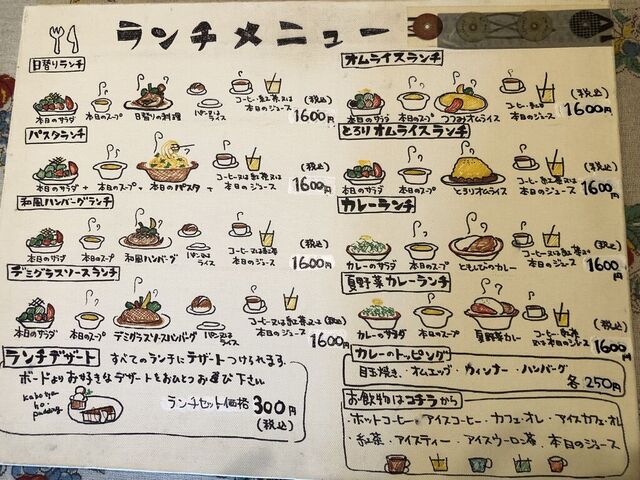 ランチメニュー
日替りランチ
本日のサラダ 本日のスープ 日替りの料理 パン又はライス コーヒー・紅茶又は本日のジュース (税込) 1600円
パスタランチ
本日のサラダ + 本日のスープ + 本日のパスタ + コーヒー又は紅茶又は本日のジュース (税込) 1600円
和風ハンバーグランチ
本日のサラダ 本日のスープ 和風ハンバーグ パン又はライス コーヒー又は紅茶又は本日のジュース (税込) 1600円
デミグラスソースランチ
本日のサラダ 本日のスープ デミグラスソースハンバーグ パン又はライス コーヒー又は紅茶又は本日のジュース (税込) 1600円
ランチデザート すべてのランチにデザートつけられます.
ボードよりお好きなデザートをおひとつお選び下さい
pudding
ランチセット価格 300円
(税込)
オムライスランチ
本日のサラダ 本日のスープ つつみオムライス 本日のジュース (税込) 1600円
とろりオムライスランチ
本日のサラダ 本日のスープ とろりオムライス コーヒー又は紅茶又は本日のジュース (税込) 1600円
カレーランチ
カレーのサラダ 本日のスープ ともしびのカレー コーヒー又は紅茶又は本日のジュース (税込) 1600円
夏野菜カレーランチ
カレーのサラダ 本日のスープ 夏野菜カレー コーヒー又は紅茶又は本日のジュース (税込) 1600円
カレーのトッピング
目玉焼き・オムエッグ・ウィンナー・ハンバーグ
各250円
お飲物はコチラから
・ホットコーヒー・アイスコーヒー・カフェ・オレ・アイスカフェ・オレ
・紅茶・アイスティー・アイスウーロン茶・本日のジュース